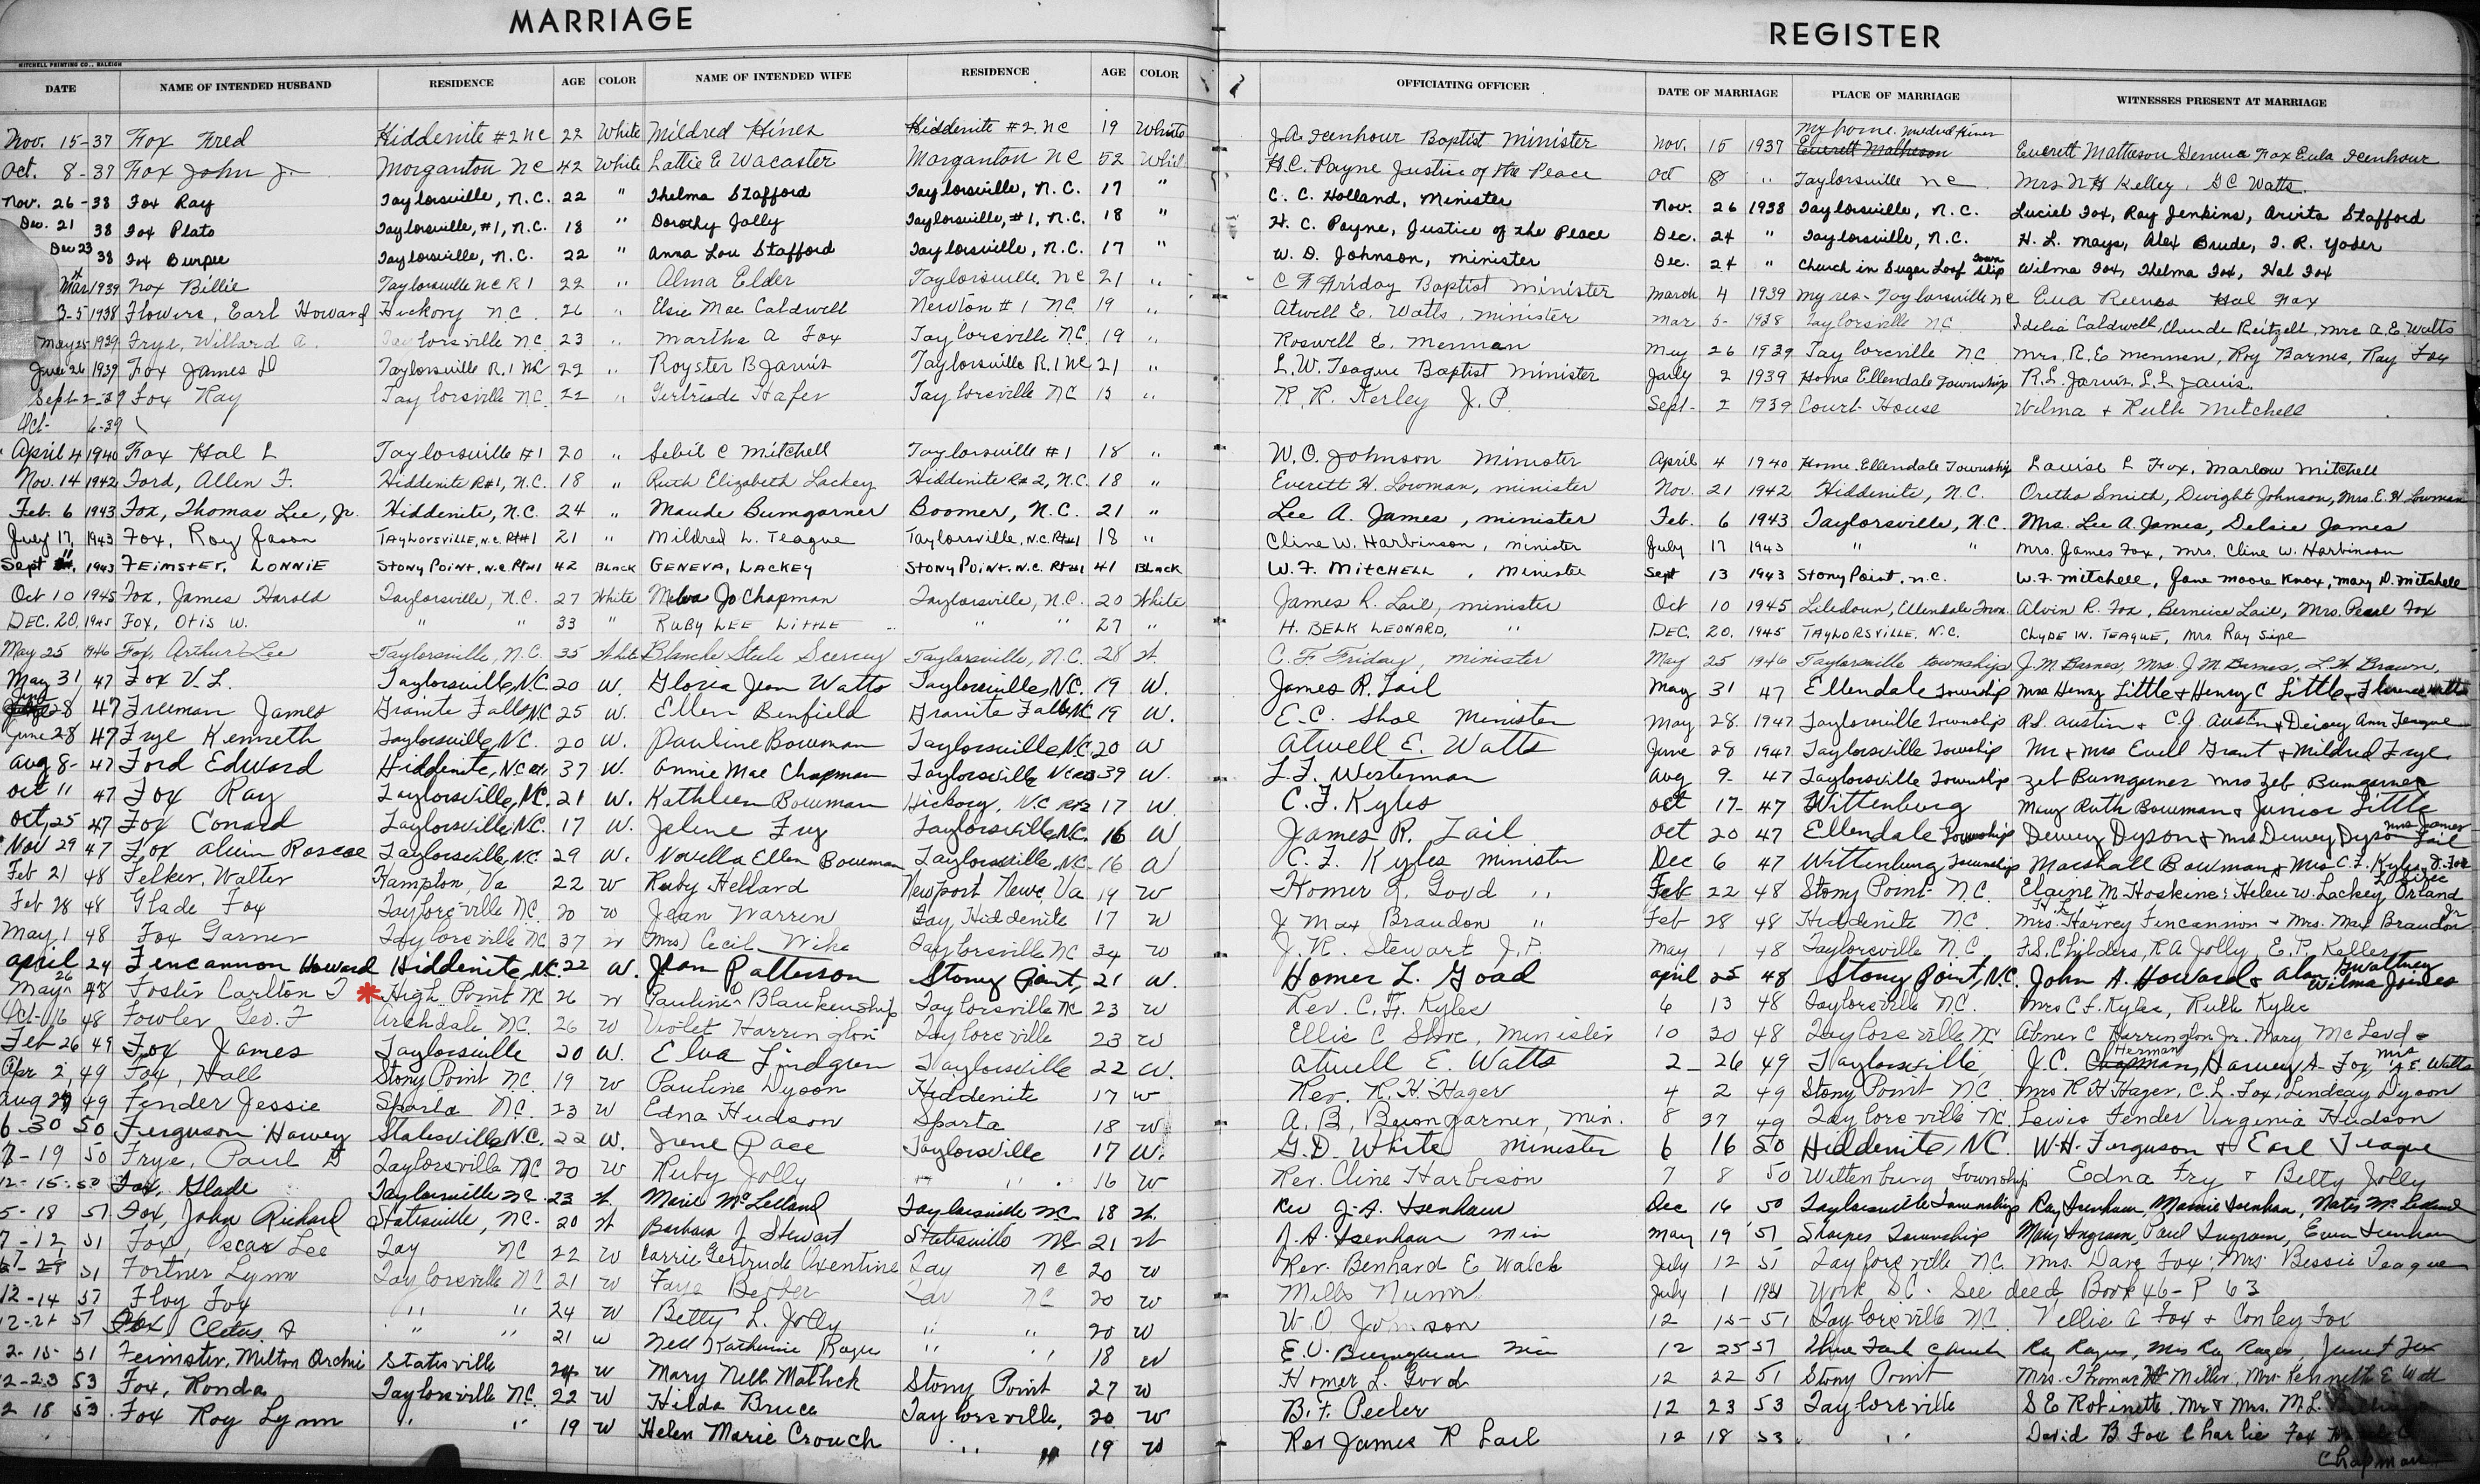 MARRIAGE REGISTER
MITCHELL PRINTING CO., RALEIGH
DATE NAME OF INTENDED HUSBAND RESIDENCE AGE COLOR NAME OF INTENDED WIFE RESIDENCE AGE COLOR OFFICIATING OFFICER DATE OF MARRIAGE PLACE OF MARRIAGE WITNESSES PRESENT AT MARRIAGE
Nov. 15-37 Fox Fred Hiddenite #2 NC 22 White Mildred Hines Hiddenite #2, NC 19 White J.A. Icenhour Baptist Minister Nov. 15 1937 My home. Mildred Hines Everett Matheson Everett Matheson Geneva Fox Eula Icenhour
Oct. 8-37 Fox John J. Morganton NC 42 White Lattie E Wacaster Morganton NC 52 Whit H.C. Payne Justice of the Peace Oct 8 " Taylorsville NC Mrs N H Kelley, G C Watts.
Nov. 26-38 Fox Ray Taylorsville, N.C. 22 " Thelma Stafford Taylorsville, N.C. 17 " C. C. Holland, Minister Nov. 26 1938 Taylorsville, N.C. Luciel Fox, Ray Jenkins, Arvita Stafford
Dec. 21 38 Fox Plato Taylorsville, #1, N.C. 18 " Dorothy Jolly Taylorsville, #1, N.C. 18 " H. C. Payne, Justice of the Peace Dec. 24 " Taylorsville, N.C. H. L. Mays, Alex Brude, F. R. Yoder
Dec 23 38 Fox Burpee Taylorsville, N.C. 22 " Anna Lou Stafford Taylorsville, N.C. 17 " W. D. Johnson, Minister Dec. 24 " Church in Sugar Loaf Town Ship Wilma Fox, Thelma Fox, Hal Fox
Mar 1939 Fox Billie Taylorsville NC R1 22 " Alma Elder Taylorsville, NC 21 " C F Friday Baptist Minister March 4 1939 My res- Taylorsville NC Eva Reeves Hal Fox
3-5 1938 Flowers, Earl Howard Hickory N.C. 26 " Elsie Mae Caldwell Newton #1 N.C. 19 " Atwell E. Watts, Minister Mar 5- 1938 Taylorsville NC Idelia Caldwell, Claude Reitzell, Mrs A.E. Watts
May 25 1939 Frye, Willard A. Taylorsville NC 23 " Martha A Fox Taylorsville NC. 19 " Roswell E. Mennen May 26 1939 Taylorsville NC Mrs. R.E Mennen, Roy Barnes, Ray Fox
June 26 1939 Fox James D Taylorsville R.1 NC 22 " Royster B Jarvis Taylorsville R.1 NC 21 " L.W. Teague Baptist Minister July 2 1939 Home Ellendale Township R.L. Jarvis. L.L Jarvis.
Sept-2-39 Fox Ray Taylorsville NC. 22 " Gertrude Hafer Taylorsville NC 15 " R. R. Kerley J.P. Sept- 2 1939 Court House Wilma + Ruth Mitchell
Oct- 6-39
April 4 1940 Fox Hal L Taylorsville #1 20 " Sebil C Mitchell Taylorsville #1 18 " W.O. Johnson Minister April 4 1940 Home Ellendale Township Louise L Fox, Marlow Mitchell
Nov. 14 1942 Ford, Allen F. Hiddenite R#1, N.C. 18 " Ruth Elizabeth Lackey Hiddenite R# 2, N.C. 18 " Everett H. Lowman, minister Nov. 21 1942 Hiddenite, N.C. Oretha Smith, Dwight Johnson, Mrs. E. H. Lowman
Feb. 6 1943 Fox, Thomas Lee, Jr. Hiddenite, N.C. 24 " Maude Bumgarner Boomer, N.C. 21 " Lee A. James, minister Feb. 6 1943 Taylorsville, N.C. Mrs. Lee A. James, Delsie James
July 17, 1943 Fox, Roy Jason Taylorsville, N.C. Rt#1 21 " Mildred L. Teague Taylorsville, N.C. Rt#1 18 " Cline W. Harbinson, minister July 17 1943 " " Mrs. James Fox, Mrs. Cline W. Harbinson
Sept 11, 1943 Feimster, Lonnie Stony Point, N.C. Rt#1 42 Black Geneva, Lackey Stony Point, N.C. Rt#1 41 Black W. F. Mitchell, Minister Sept 13 1943 Stony Point, N.C. W. F. Mitchell, Jane Moore Knox, Mary D. Mitchell
Oct 10 1945 Fox, James Harold Taylorsville, N.C. 27 White Melva Jo Chapman Taylorsville, N.C. 20 White James R. Lail, minister Oct 10 1945 Liledoun, Ellendale Town. Alvin R. Fox, Berneice Lail, Mrs. Pearl Fox
DEC. 20, 1945 Fox, Otis W. " " 33 " Ruby Lee Little " " 27 " H. Belk Leonard, " DEC. 20. 1945 Taylorsville, N.C. Clyde W. Teague, Mrs. Ray Sipe
May 25 1946 Fox, Arthur Lee Taylorsville, N.C. 35 White Blanche Steele Scercey Taylorsville, N.C. 28 W. C. F. Friday, minister May 25 1946 Taylorsville township J. M Barnes, Mrs. J. M Barnes, L. H. Brown,
May 31 47 Fox V. L. Taylorsville, N.C. 20 W. Gloria Jean Watts Taylorsville, N.C. 19 W. James R. Lail May 31 47 Ellendale Township Mrs Henry Little & Henry C Little & Florence Watts
June 28 47 Freeman James Granite Falls, NC 25 W. Ellen Benfield Granite Falls, NC 19 W. E. C. Shoe Minister May 28. 1947 Taylorsville Township R.S. Austin & C. J. Austin & Deicy Ann Teague
June 28 47 Frye Kenneth Taylorsville, N.C. 20 W. Pauline Bowman Taylorsville N.C. 20 W Atwell E. Watts June 28 1947 Taylorsville Township Mr & Mrs Euell Grant & Mildred Frye
Aug 8- 47 Ford Edward Hiddenite, NC 37 W. Annie Mae Chapman Taylorsville NC 39 W. L. F. Westerman Aug 9. 47 Taylorsville Township Zeb Bumgarner Mrs Zeb Bumgarner
Oct 11 47 Fox Ray Taylorsville, N.C. 21 W. Kathleen Bowman Hickory, N.C Rt2 17 W. C. F. Kyles Oct 17- 47 Wittenburg Mary Ruth Bowman & Junior Little
Oct, 25 47 Fox Conard Taylorsville N.C. 17 W. Jelene Fry Taylorsville N.C. 16 W James R. Lail Oct 20 47 Ellendale Township Dewey Dyson & Mrs Dewey Dyson Mrs James Lail
Nov 29 47 Fox Alvin Roscoe Taylorsville, N.C. 29 W. Novella Ellen Bowman Taylorsville, N.C. 16 W C. F. Kyles Minister Dec 6 47 Wittenburg Township Marshall Bowman & Mrs C. F. Kyles, D. Fox
Feb 21 48 Felker, Walter Hampton, Va 22 W Ruby Hellard Newport News, Va 19 W Homer L. Good " Feb 22 48 Stony Point N.C. Elaine M. Hoskins, Helen W. Lackey Orland
Feb 28 48 Glade Fox Taylorsville NC. 20 W Jean Warren Tay Hiddenite 17 W J Max Brandon " Feb 28 48 Hiddenite N.C. Mrs. Harvey Fincannon & Mrs. Max Brandon
May, 1 48 Fox Garner Taylorsville NC 37 W (Mrs) Cecil Wike Taylorsville NC 34 W J. R. Stewart J.P. May 1 48 Taylorsville N.C F.S. Childers, R A Jolly, E. P. Keller
April 24 Fencannon Howard Hiddenite, N.C. 22 W. Jean Patterson Stony Point, 21 W. Homer L. Goad April 25 48 Stony Point, N.C. John A. Howard & Alan Gwaltney Wilma Joines
May 26 48 Foster Carlton T * High Point NC 26 W Pauline Blankenship Taylorsville NC 23 W Rev. C. F. Kyles 6 13 48 Taylorsville N.C. Mrs C F. Kyles, Ruth Kyles
Oct-16 48 Fowler Geo. F Archdale N.C. 26 W Violet Harrington Taylorsville 23 W Ellis C Shoe, Minister 10 30 48 Taylorsville NC Abner C Harrington Jr. Mary McLeod &
Feb 26 49 Fox James Taylorsville 20 W. Elva Lindgren Taylorsville 22 W. Atwell E. Watts 2- 26 49 Taylorsville J. C. Herman, Harvey A. Fox, Mrs A. E. Watts
Apr 2, 49 Fox, Hall Stony Point N.C. 19 W Pauline Dyson Hiddenite 17 W Rev. R. H. Hager 4 2 49 Stony Point NC Mrs R H Hager, C. L. Fox, Lindsay Dyson
Aug 27 49 Fender Jessie Sparta N.C. 23 W Edna Hudson Sparta 18 W A. B. Bumgarner, Min. 8 27 49 Taylorsville NC. Lewis Fender Virginia Hudson
6-30 50 Ferguson Harvey Statesville N.C. 22 W. Irene Pace Taylorsville 17 W. G. D. White Minister 6 16 50 Hiddenite, NC. W. H. Ferguson & Earl Teague
7-19 50 Frye, Paul D Taylorsville NC 20 W Ruby Jolly " " 16 W Rev. Cline Harbison 7 8 50 Wittenburg Township Edna Fry & Betty Jolly
12-15-50 Fox, Glade Taylorsville NC. 23 W. Marie McLelland Taylorsville NC 18 W. Rev J. A. Isenhour Dec 16 50 Taylorsville Township Ray Isenhour, Mamie Isenhour, Nates McLelland
5-18 51 Fox, John Richard Statesville, NC- 20 W Barbara J Stewart Statesville NC 21 W J. A. Isenhour Min May 19 '51 Sharpes Township Mary Ingram, Paul Ingram, Isenhour
7-12 51 Fox, Oscar Lee Tay NC 22 W Carrie Gertrude Oxentine Tay NC 20 W Rev. Benhard E Walck July 12 51 Taylorsville NC. Mrs. Dave Fox, Mrs Bessie Teague
51 Fortner Lynn Taylorsville NC 21 W Faye Tay NC 20 W Mills Nunn July 1 1951 York SC. See deed Book 46-P 63
12-14 51 Floy Fox " " 24 W Betty L. Jolly " " 20 W W. O. Johnson 12 15-51 Taylorsville NC. Nellie A Fox & Conley Fox
12-21 51 Fox, Cletus A " " 21 W Nell Katherine " " 18 W Min 12 25 51 Church
2-15-51 Feimster, Milton Archie Statesville 24 W Mary Nell Matlock Stony Point 27 W Homer L. Good 12 22 51 Stony Point Mrs. Thomas H Miller, Mrs Kenneth E Watt
12-23 53 Fox, Ronda Taylorsville NC. 22 W Hilda Bruce Taylorsville, 20 W B. F. Peeler 12 23 53 Taylorsville S E Robinette, Mr & Mrs. M. L.
2 18 53 Fox Roy Lynn " " 19 W Helen Marie Crouch " " 19 W Rev James R Lail 12 18 53 " David B Fox Charlie Fox
Chapman